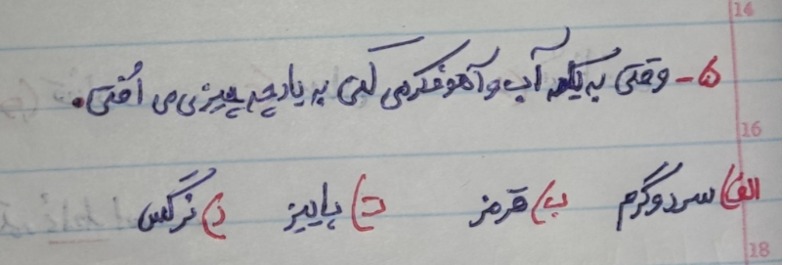 14
۵- وقتی به یک آب و آهو فکر می کنی به یاد چه چیزی می افتی.
16
الف) سرد و گرم ب) قرمز ج) پاییز د) نرگس
18